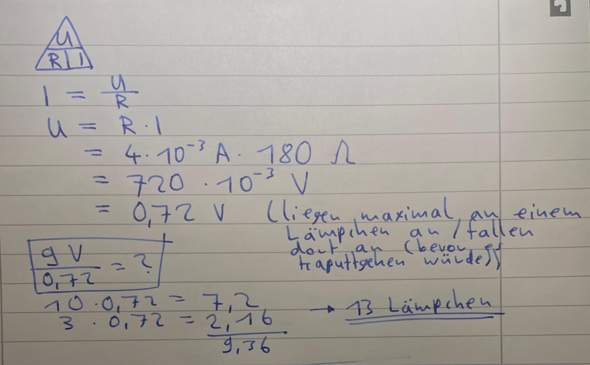 U
R | I
I = U/R
U = R · I
= 4 · 10⁻³ A · 180 Ω
= 720 · 10⁻³ V
= 0,72 V (liegen maximal an einem
Lämpchen an / fallen
dort an (bevor es
kaputtgehen würde))
9 V / 0,72 = ?
10 · 0,72 = 7,2
3 · 0,72 = 2,16 → 13 Lämpchen
9,36